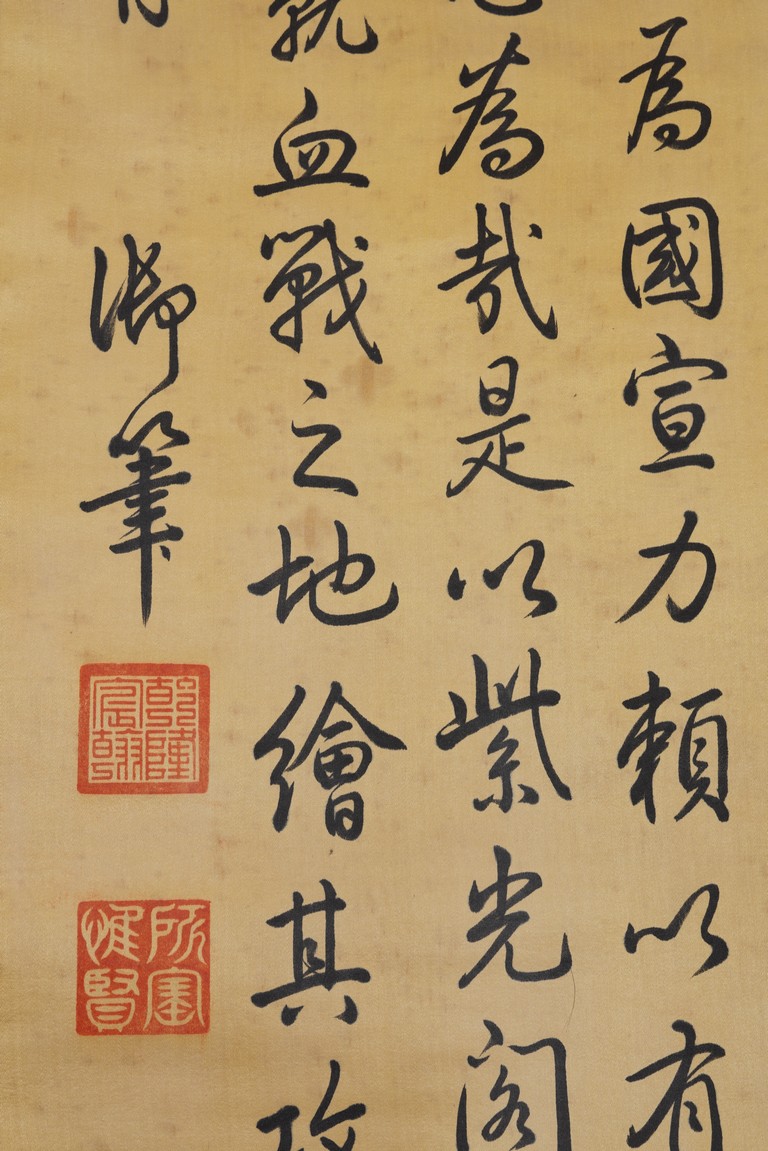 為國宣力賴以有
為哉是以紫光閣
血戰之地繪其攻
御筆
乾隆宸翰
所寶惟賢